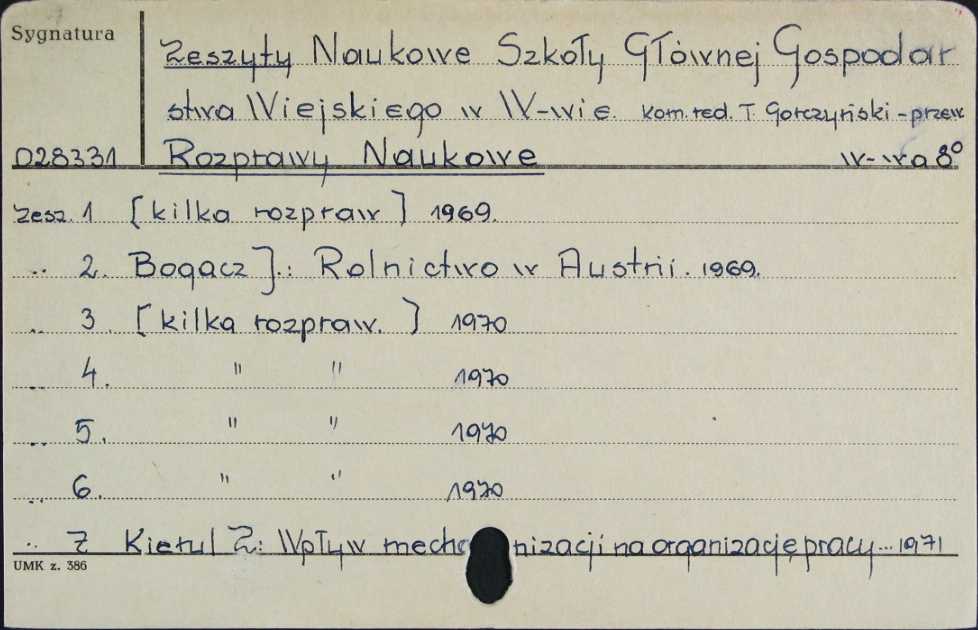 Sygnatura
Zeszyty Naukowe Szkoły Głównej Gospodar
stwa Wiejskiego w W-wie. Kom. red. T. Gorczyński - przew
028331 Rozprawy Naukowe W-wa 8°
Zesz. 1 [kilka rozpraw] 1969.
.. 2. Bogacz J.: Rolnictwo w Austrii. 1969.
.. 3. [kilka rozpraw.] 1970
.. 4. " " 1970
.. 5. " " 1970
.. 6. " " 1970
.. 7 Kierul Z: Wpływ mechanizacji na organizację pracy... 1971
UMK z. 386